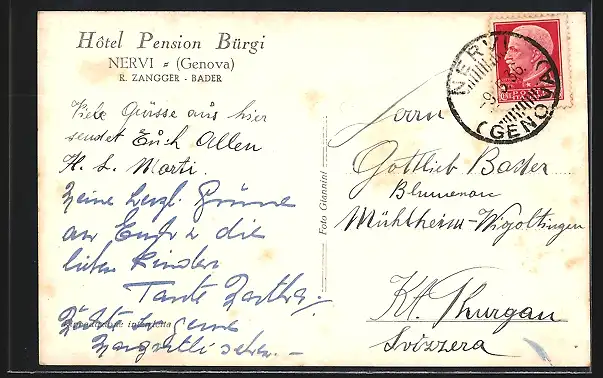 Hôtel Pension Bürgi
NERVI = (Genova)
R. ZANGGER - BADER
Viele Grüsse aus hier
sendet Euch Allen
H. L. Marti.
an Euch & die
lieben Kinder
Tante Bertha.
Riproduzione interdetta
Foto Giannini
NERVI
(GENOVA)
Herrn
Gottlieb Bader
Blumenau
Mühlheim-Wigoltingen
Kt. Thurgau
Svizzera